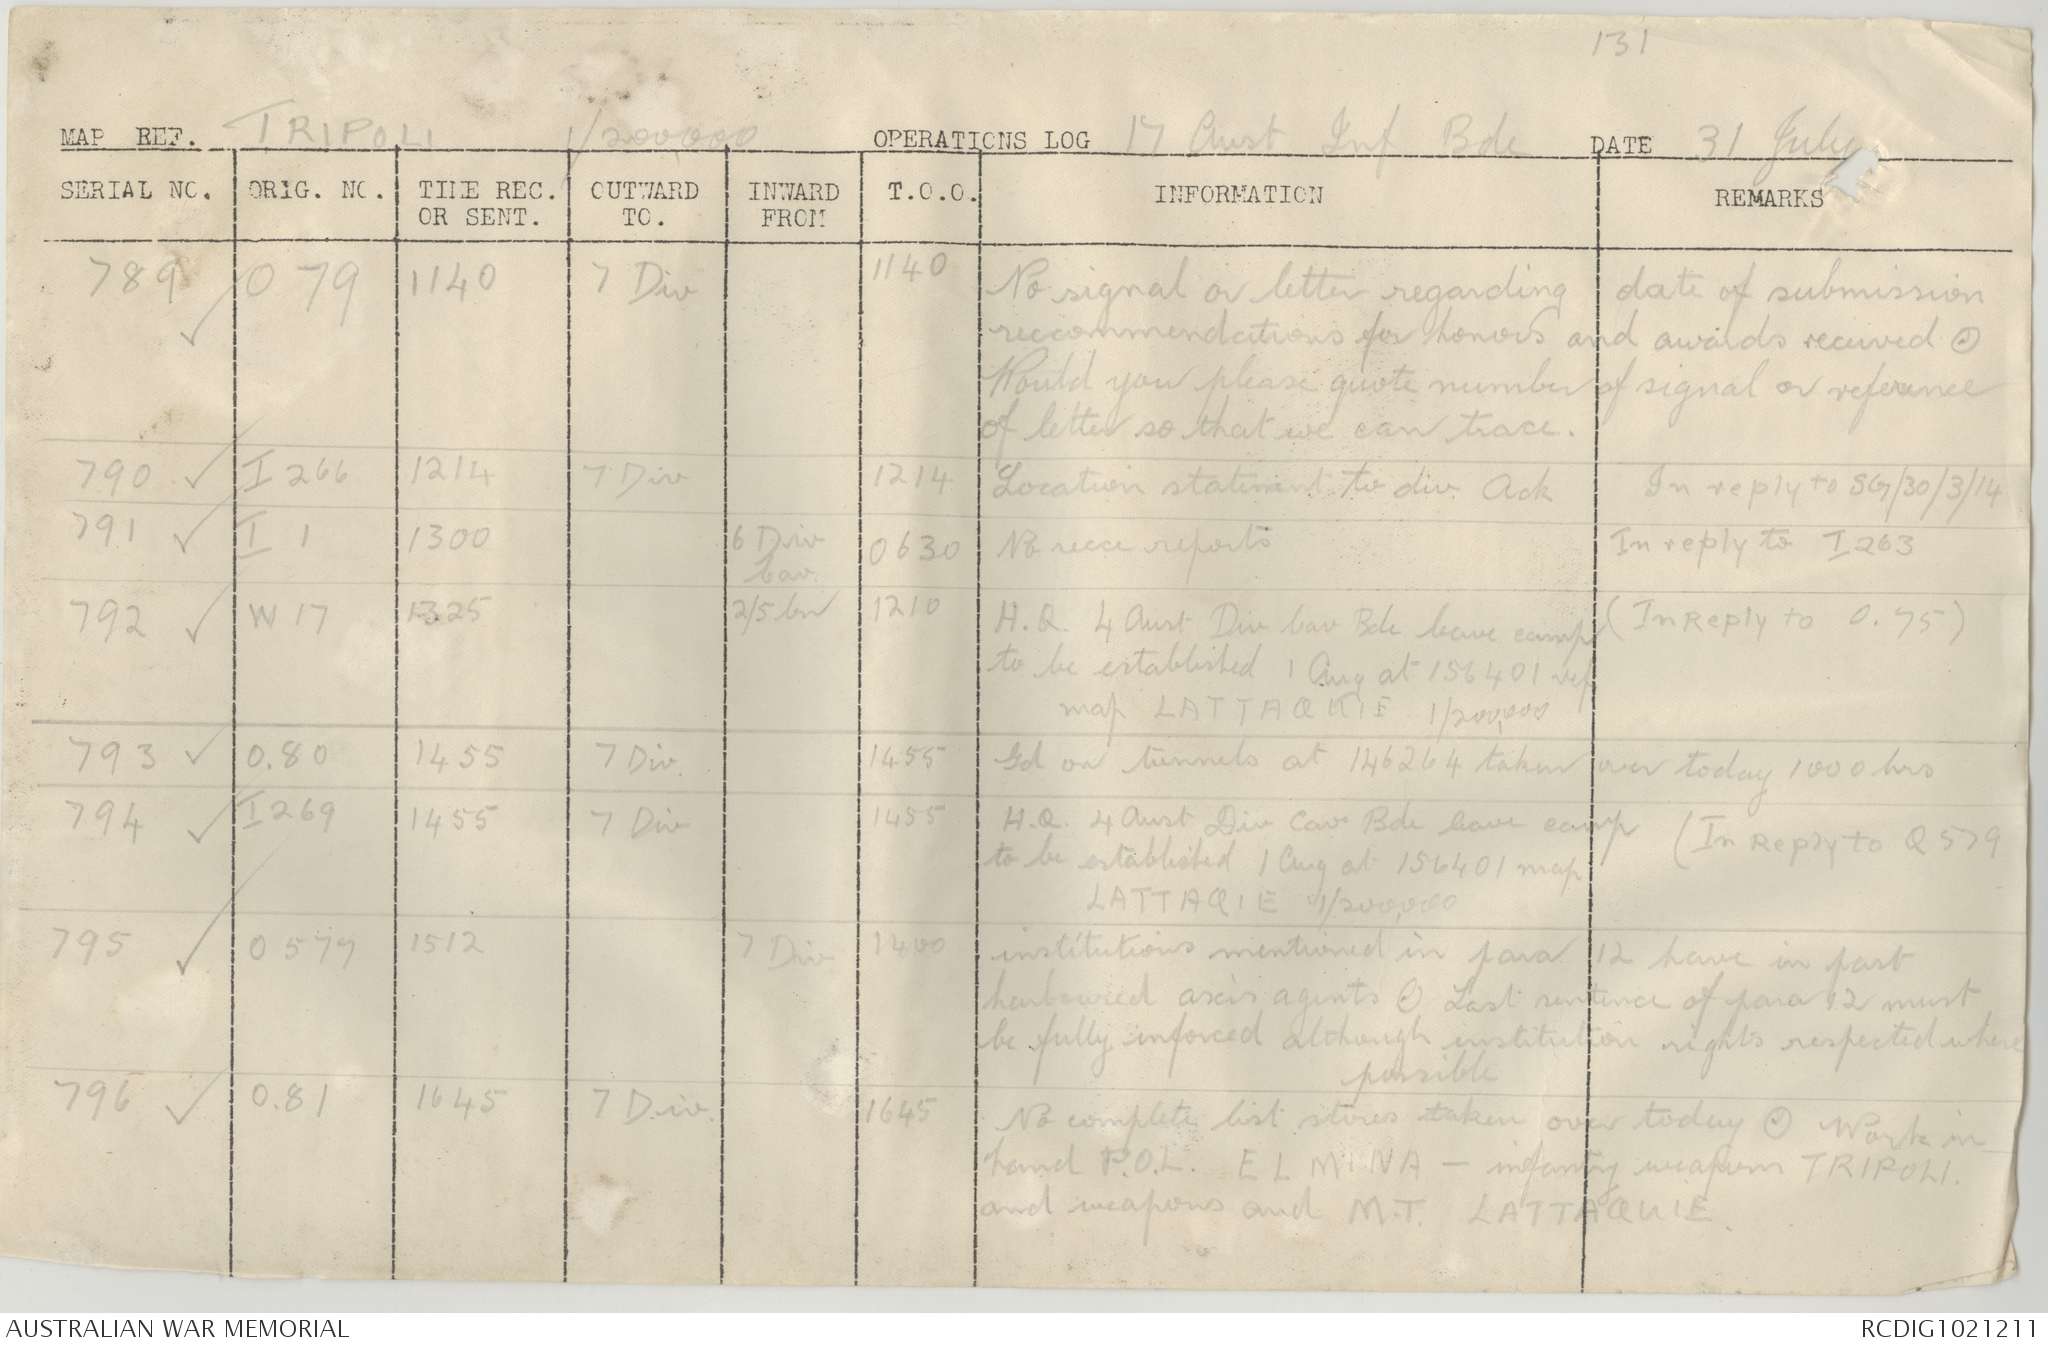 131
MAP REF. TRIPOLI 1/200,000 OPERATIONS LOG 17 Aust Inf Bde DATE 31 July
SERIAL NO. ORIG. NO. TIME REC. OR SENT. OUTWARD TO. INWARD FROM T.O.O. INFORMATION REMARKS
789 ✓ O 79 1140 7 Div 1140 No signal or letter regarding date of submission
reccommendations for honors and awards received ⊙
Would you please quote number of signal or reference
of letter so that we can trace.
790 ✓ I 266 1214 7 Div 1214 Location statement to div Ack In reply to SG7/30/3/14
791 ✓ I 1 1300 6 Div Cav. 0630 No recce reports In reply to I 263
792 ✓ W 17 1325 2/5 bn 1210 H.Q. 4 Aust Div Cav Bde leave camp (In Reply to O.75)
to be established 1 Aug at 156401 ref
map LATTAQUIE 1/200,000
793 ✓ O.80 1455 7 Div. 1455 Gd on tunnels at 146264 taken over today 1000 hrs
794 ✓ I 269 1455 7 Div 1455 H.Q. 4 Aust Div Cav Bde leave camp (In Reply to Q 579
to be established 1 Aug at 156401 map
LATTAQIE 1/200,000
795 ✓ O 577 1512 7 Div 1400 institutions mentioned in para 12 have in past
harboured axis agents ⊙ Last sentence of para 12 must
be fully inforced although institution rights respected where
possible
796 ✓ O.81 1645 7 Div. 1645 No complete list stores taken over today ⊙ Work in
hand P.O.L. EL MINA — infantry weapons TRIPOLI.
and weapons and M.T. LATTAQUIE.
AUSTRALIAN WAR MEMORIAL RCDIG1021211